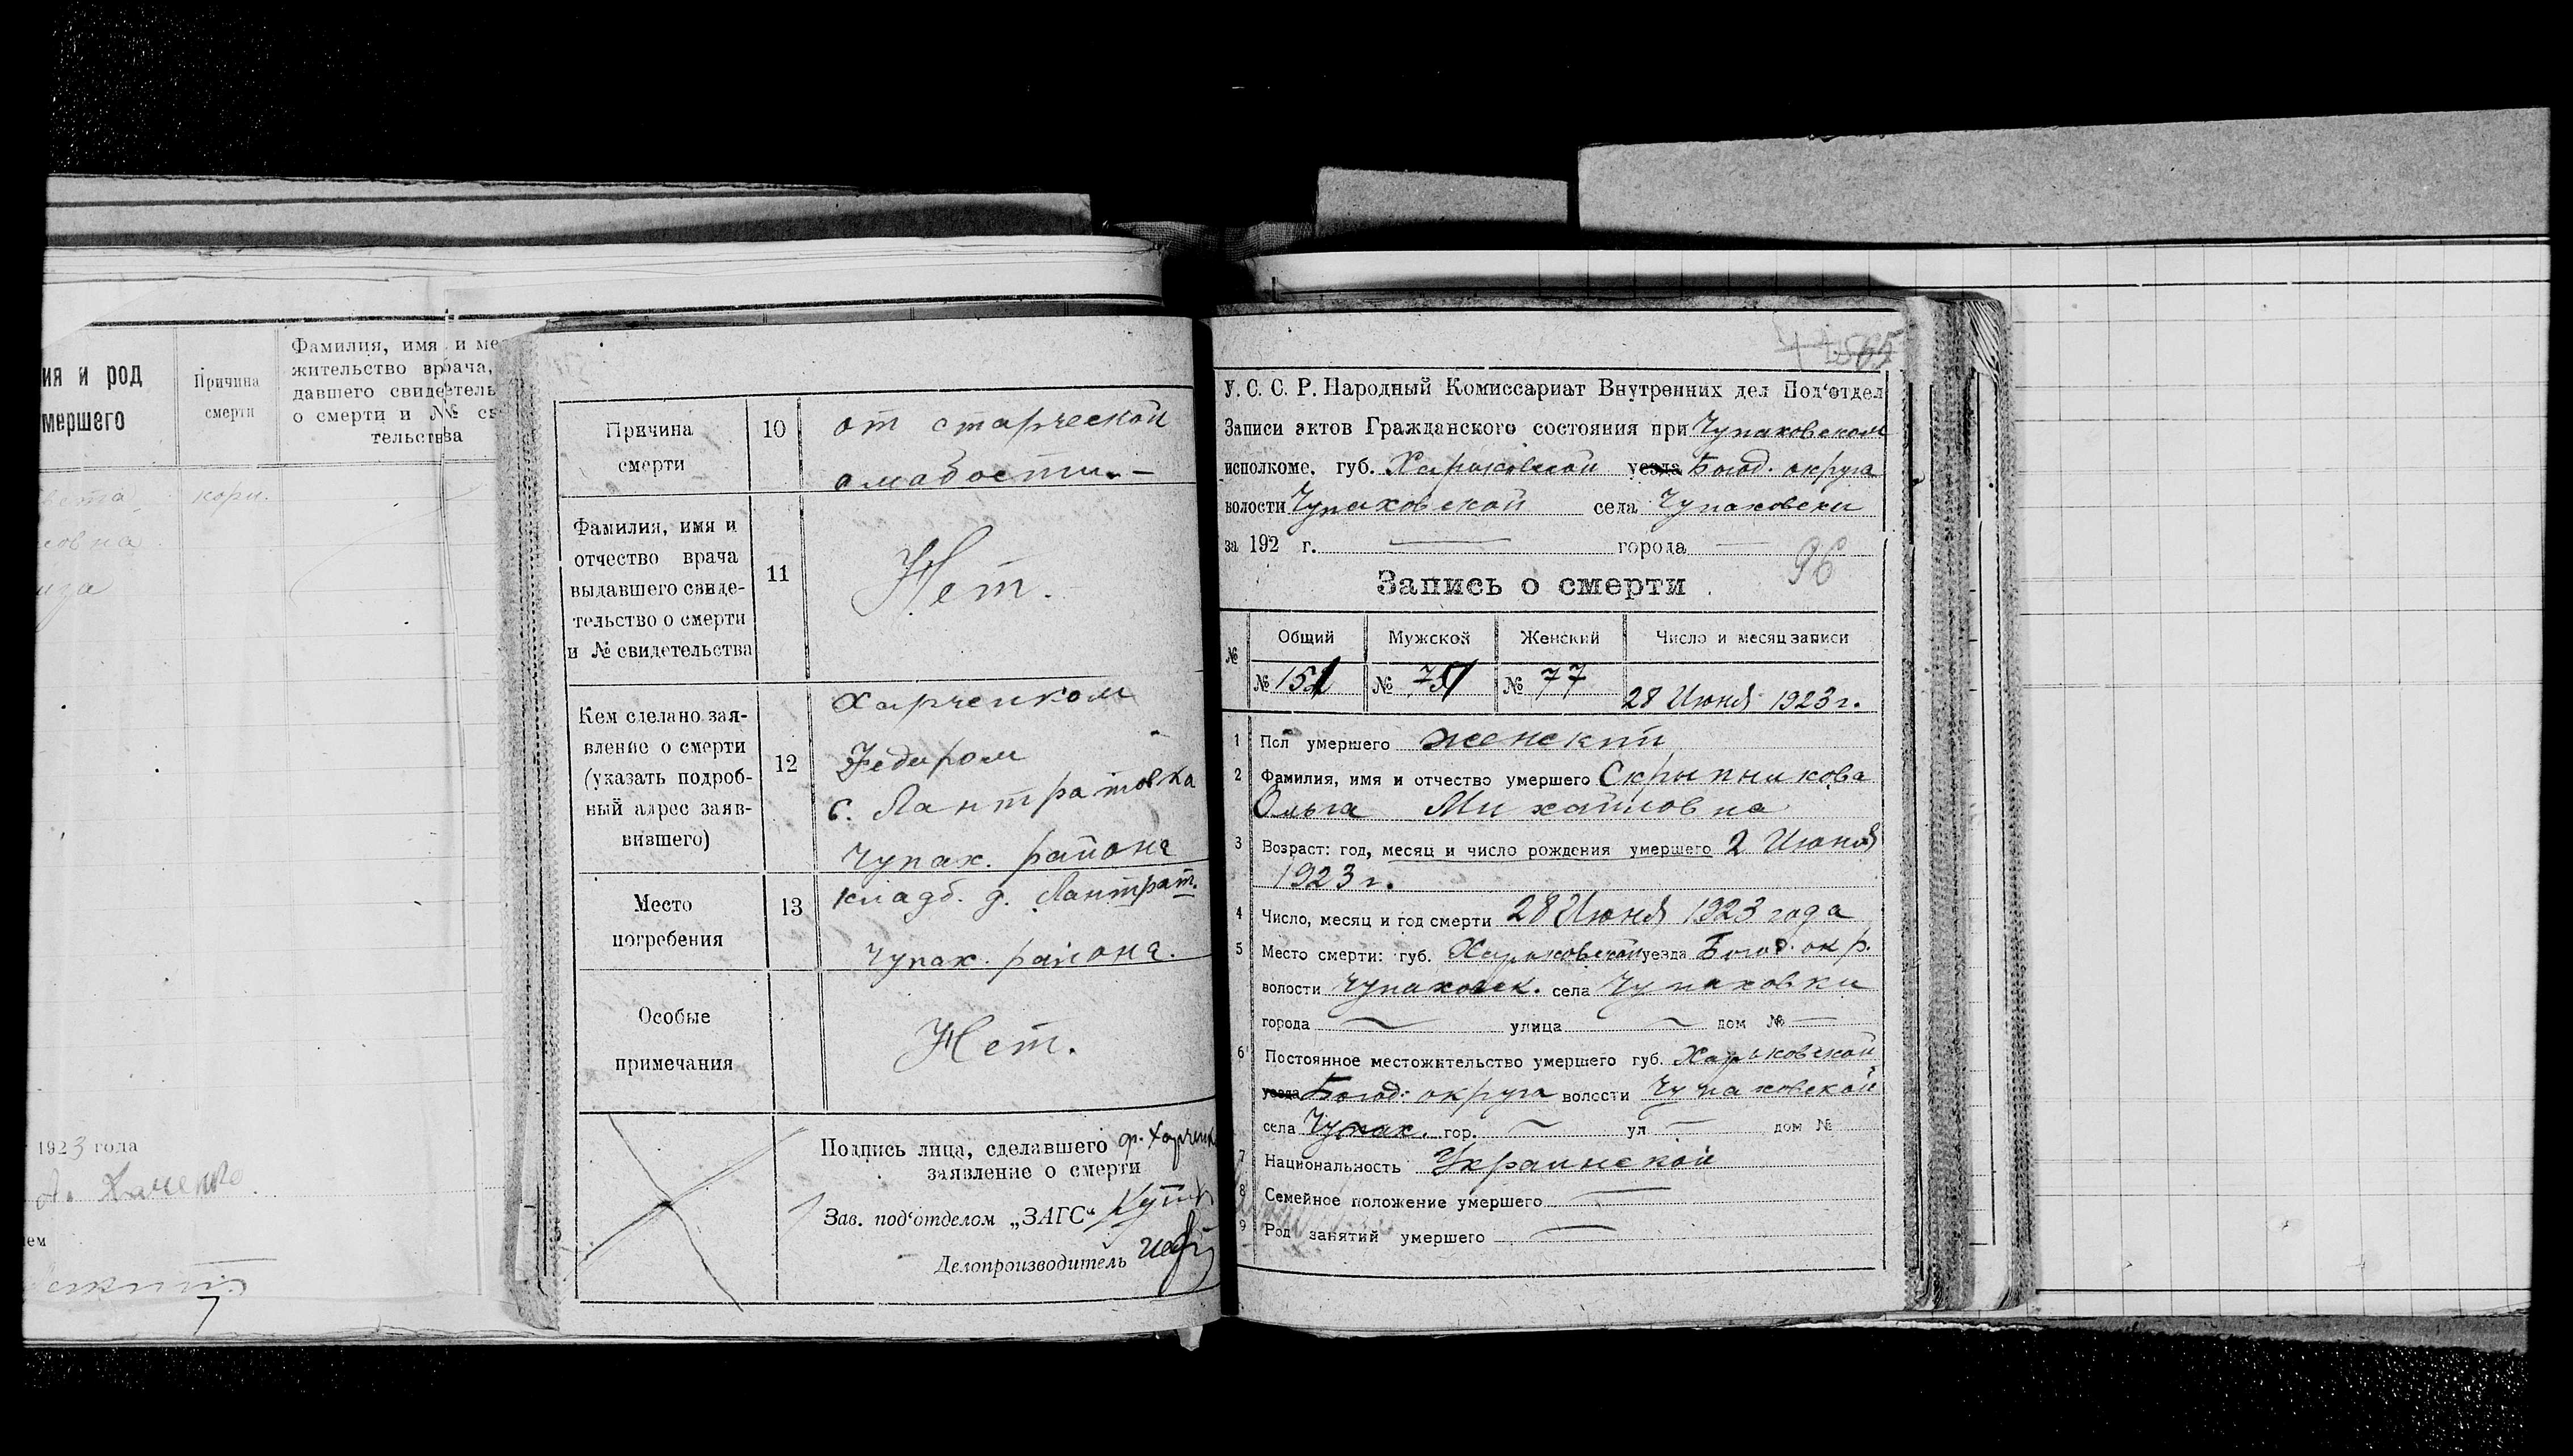 ия и род
мершего
Причина
смерти
Фамилия, имя и ме
жительство врача,
давшего свидетель
о смерти и №№ св
тельства
овна
1923 года
ем
Причина
смерти
10
от старческой
слабости. –
Фамилия, имя и
отчество врача
выдавшего свиде-
тельство о смерти
и № свидетельства
11
Нет.
Кем сделано зая-
вление о смерти
(указать подроб-
ный адрес заяв-
вившего)
12
Харченком
Федиром
с. Лантратовка
Чупах. района
Место
погребения
13
кладб. д. Лантрат.
Чупах. района.
Особые
примечания
Нет.
Подпись лица, сделавшего ф. Харченк
заявление о смерти
Зав. под'отделом „ЗАГС“
Делопроизводитель
У. С. С. Р. Народный Комиссариат Внутренних дел Под'отдел
Записи актов Гражданского состояния при Чупаховском
исполкоме. губ. Харьковской уезда Богод. округа
волости Чупаховской села Чупаховски
за 192 г. — города —
96
Запись о смерти
№ Общий Мужской Женский Число и месяц записи
№ 151 № № 77 28 Июня 1923 г.
1 Пол умершего женский
2 Фамилия, имя и отчество умершего Скрыпникова
Ольга Михайловна
3 Возраст: год, месяц и число рождения умершего 2 Июня
1923 г.
4 Число, месяц и год смерти 28 Июня 1923 года
5 Место смерти: губ. Харьковской уезда Богод. окр.
волости Чупаховск. села Чупаховки
города — улица — дом № —
6 Постоянное местожительство умершего губ. Харьковской
уезда Богод. округа волости Чупаховской
села Чупах. гор. — ул — дом №
7 Национальность Украинской
8 Семейное положение умершего —
9 Род занятий умершего —